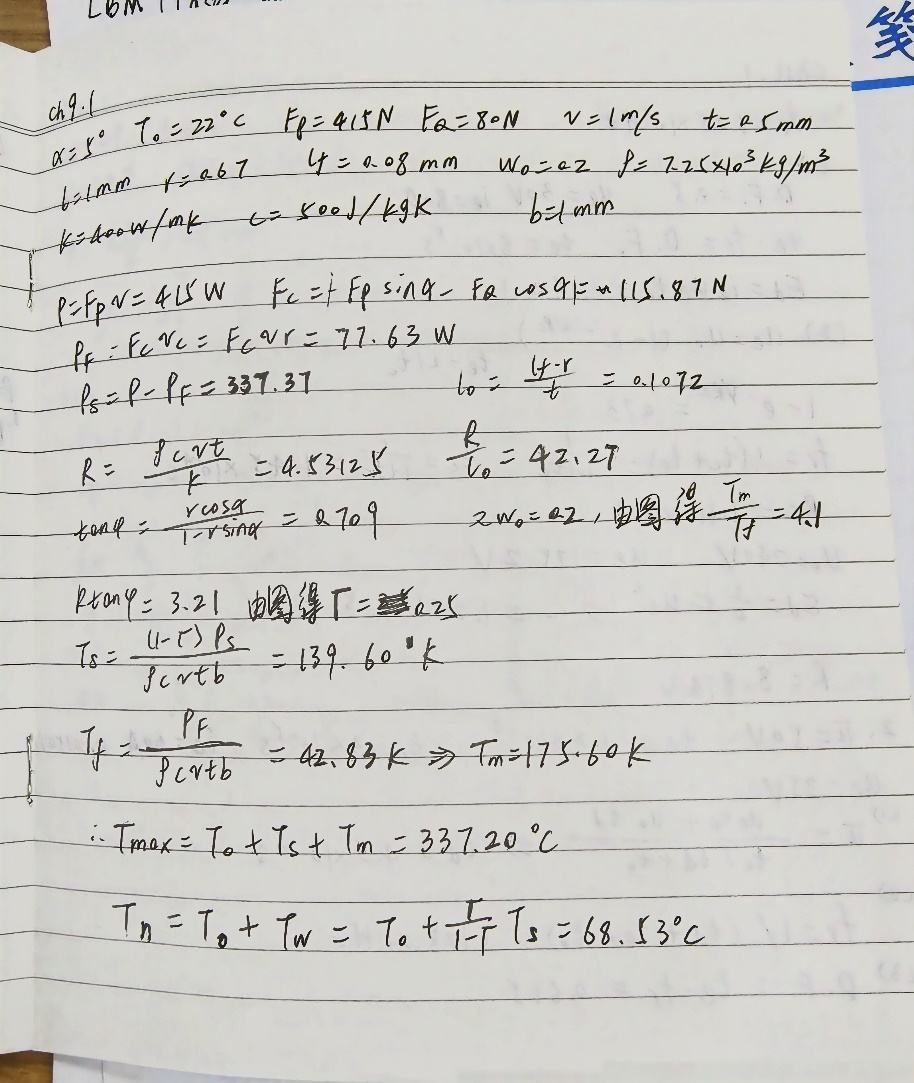 LBM
笺
ch9.1
α=5° T₀=22°C Fp=415N FQ=80N v=1m/s t=0.5mm
b=1mm r=0.67 lf=0.08mm w₀=0.2 ρ=7.25×10³kg/m³
k=400W/mk c=500J/kgK b=1mm
P=Fpv=415W Fc=|-Fp sinα-FQ cosα|=115.87N
PF=Fcvc=Fcvr=77.63W
Ps=P-PF=337.37 l₀=lf·r/t=0.1072
R=ρcvt/k=4.53125 R/l₀=42.27
tanφ=rcosα/1-rsinα=0.709 2w₀=0.2,由图得Tm/Tf=4.1
Rtanφ=3.21 由图得Γ=0.25
Ts=(1-Γ)Ps/ρcvtb=139.60°K
Tf=PF/ρcvtb=42.83K⇒Tm=175.60K
∴Tmax=T₀+Ts+Tm=337.20°C
Tn=T₀+Tw=T₀+Γ/1-Γ Ts=68.53°C